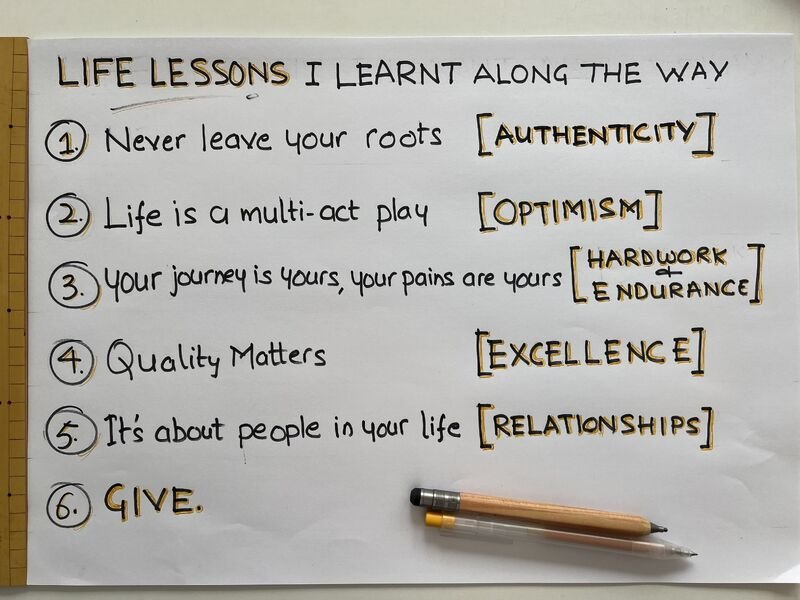 LIFE LESSONS I LEARNT ALONG THE WAY
1. Never leave your roots [AUTHENTICITY]
2. Life is a multi-act play [OPTIMISM]
3. Your journey is yours, your pains are yours [HARDWORK + ENDURANCE]
4. Quality Matters [EXCELLENCE]
5. It's about people in your life [RELATIONSHIPS]
6. GIVE.